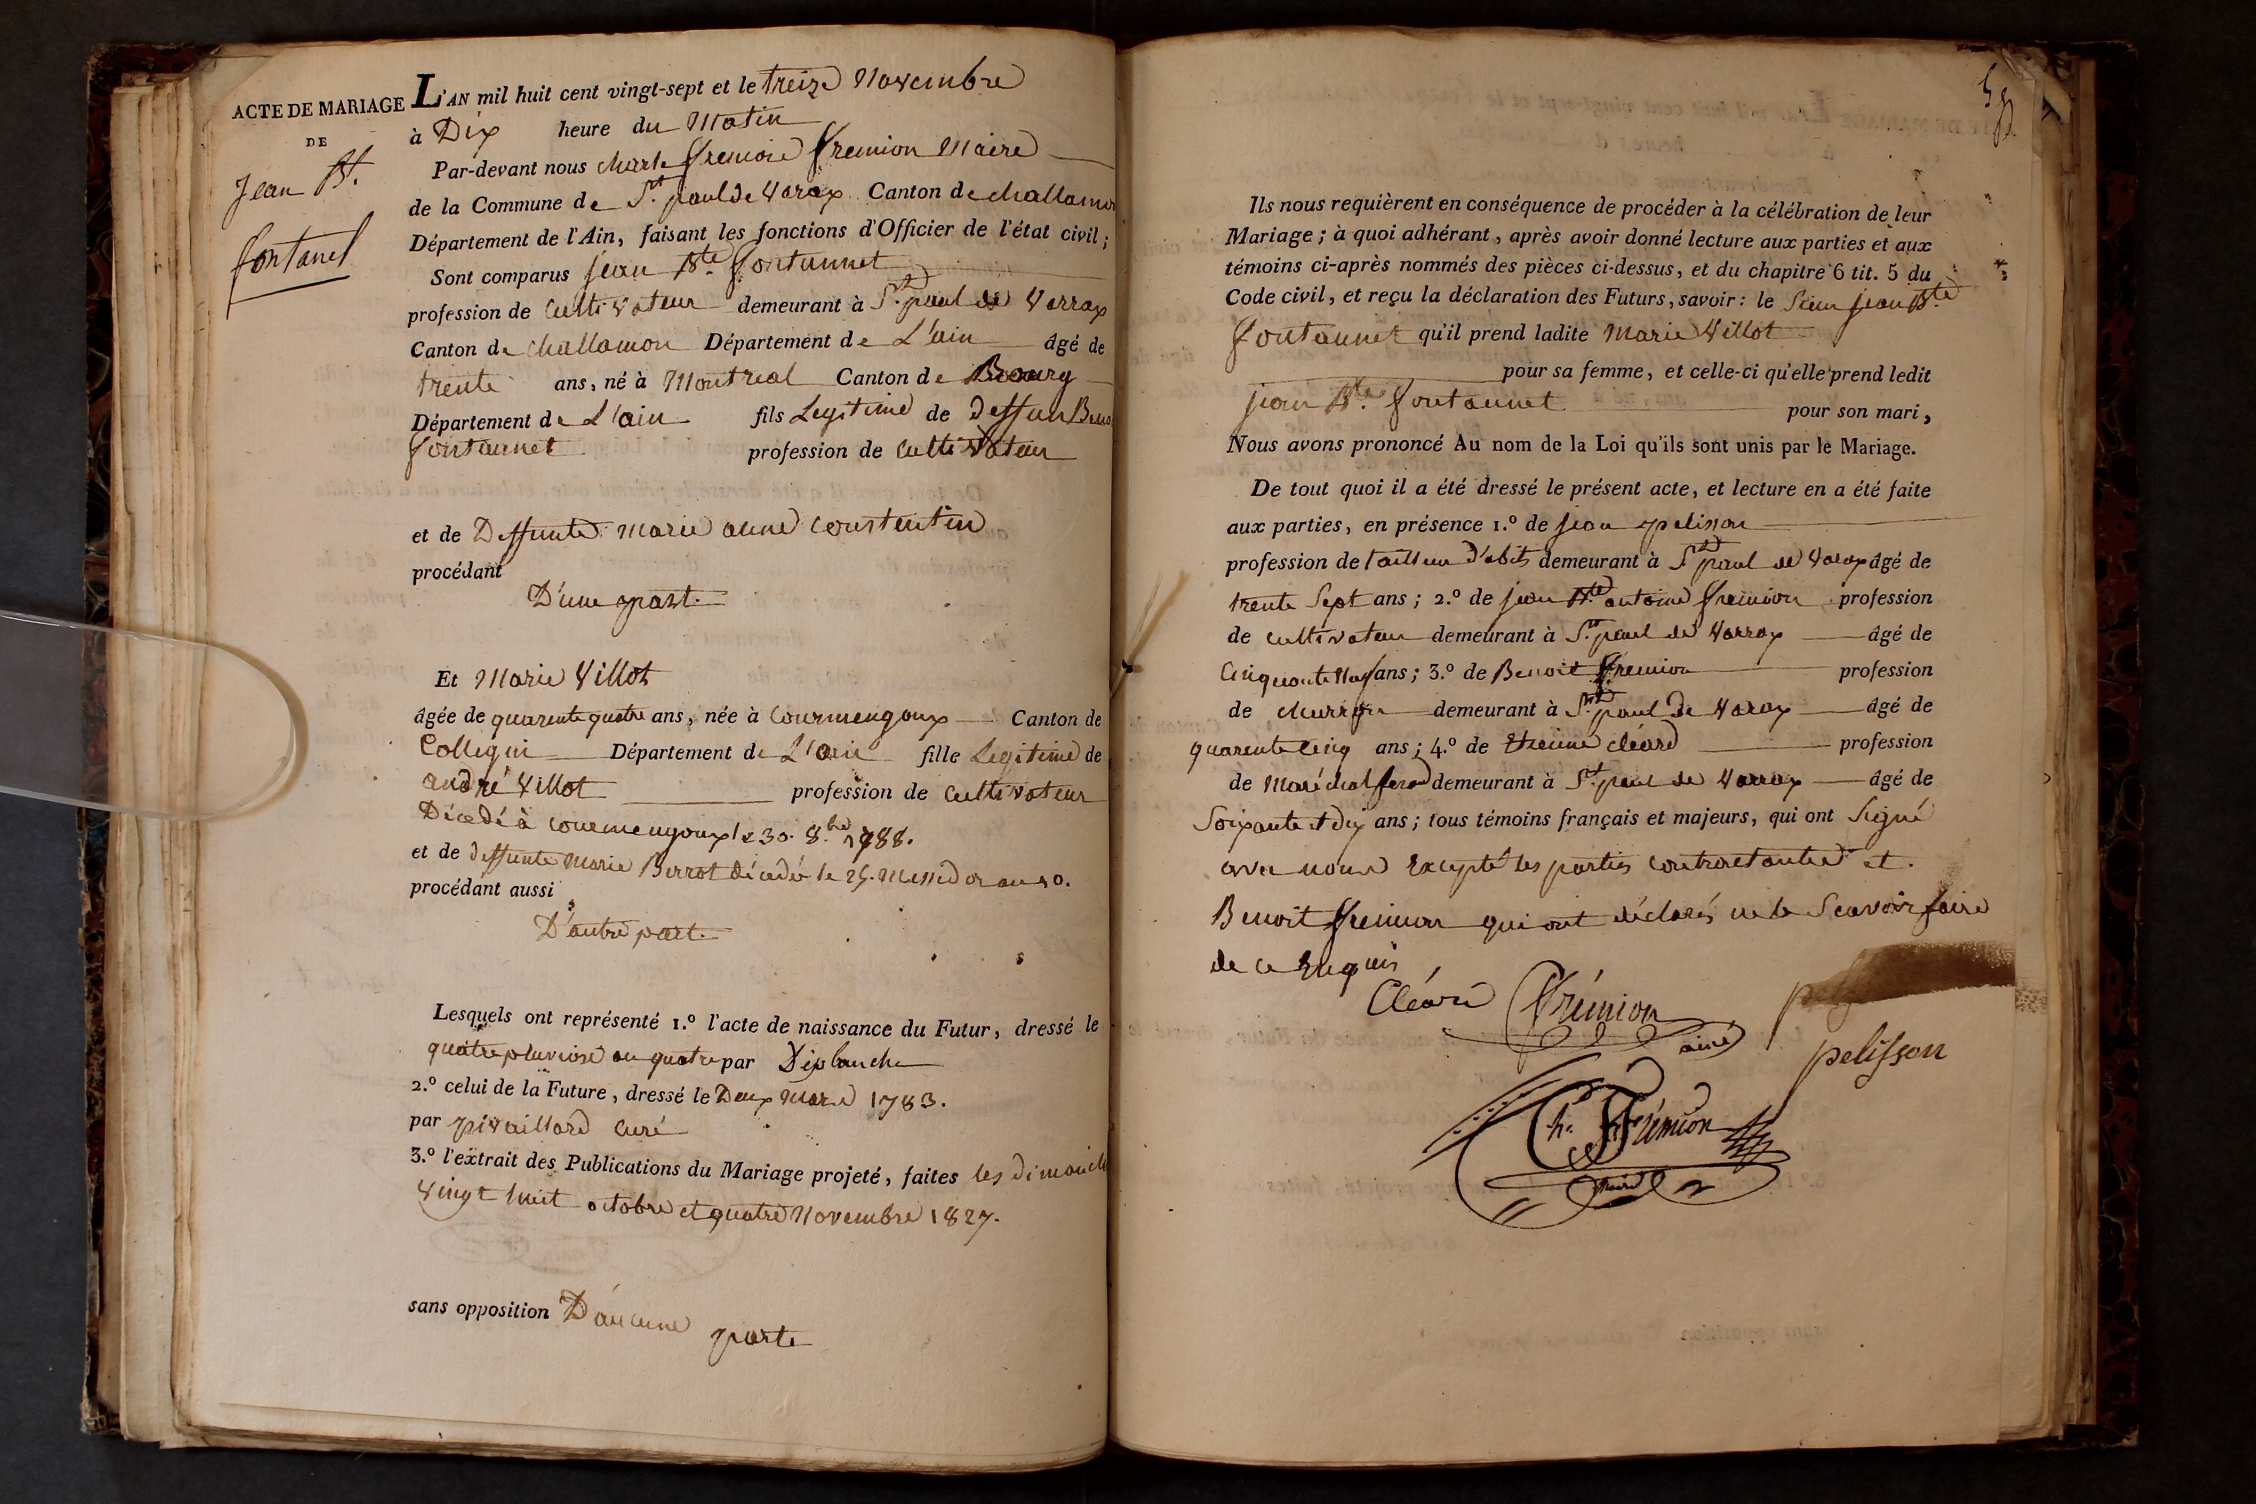 ACTE DE MARIAGE
DE
Jean Bt.
fontanel
L'AN mil huit cent vingt-sept et le treize Novembre
à Dix heure du Matin
Par-devant nous Charle fremion Maire
de la Commune de St. paul de Varax Canton de challamon
Département de l'Ain, faisant les fonctions d'Officier de l'état civil;
Sont comparus jean Bte. fontannet
profession de Cultivateur demeurant à St. paul de Varrax
Canton de challamon Département de L'ain âgé de
trente ans, né à Montreal Canton de Bourg
Département de L'ain fils Legitime de deffun
fontannet profession de Cultivateur
et de Deffunte marie anne Constentin
procédant
D'une part.
Et Marie Villot
âgée de quarente quatre ans, née à Courmengoux Canton de
Collegni Département de L'ain fille Legitime de
andré Villot profession de Cultivateur
Décédé à Courmengoux le 30. 8.bre 1788.
et de deffunte Marie Berrot décédé le 25. Messidor an 10.
procédant aussi
D'autre part.
Lesquels ont représenté 1.º l'acte de naissance du Futur, dressé le
quatre pluviose an quatre par Deplanche
2.º celui de la Future, dressé le Deux Mars 1783.
par pivaillard curé
3.º l'extrait des Publications du Mariage projeté, faites les dimanche
Vingt huit octobre et quatre Novembre 1827.
sans opposition D'aucune
parte
Ils nous requièrent en conséquence de procéder à la célébration de leur
Mariage; à quoi adhérant, après avoir donné lecture aux parties et aux
témoins ci-après nommés des pièces ci-dessus, et du chapitre 6 tit. 5 du
Code civil, et reçu la déclaration des Futurs, savoir: le Sieur jean Bte
fontannet qu'il prend ladite Marie Villot
pour sa femme, et celle-ci qu'elle prend ledit
jean Bte. fontannet pour son mari,
Nous avons prononcé Au nom de la Loi qu'ils sont unis par le Mariage.
De tout quoi il a été dressé le présent acte, et lecture en a été faite
aux parties, en présence 1.º de jean pelisson
profession de tailleur d'abits demeurant à St paul de Varax âgé de
trente Sept ans; 2.º de jean Bte antoine fremion profession
de cultivateur demeurant à St. paul de Varrax âgé de
Cinquante Neuf ans; 3.º de Benoit fremion profession
de charron demeurant à St. paul de Varax âgé de
quarente Cinq ans; 4.º de Etienne cléard profession
de Maréchal ferrand demeurant à St. paul de Varrax âgé de
Soixante et dix ans; tous témoins français et majeurs, qui ont Signé
avec nous Excepté les parties contractantes et.
Benoit fremion qui ont déclarés ne le Scavoir faire
de ce Enquis
Cléard frémion
ainé
pelisson
Ch. Frémion
maire